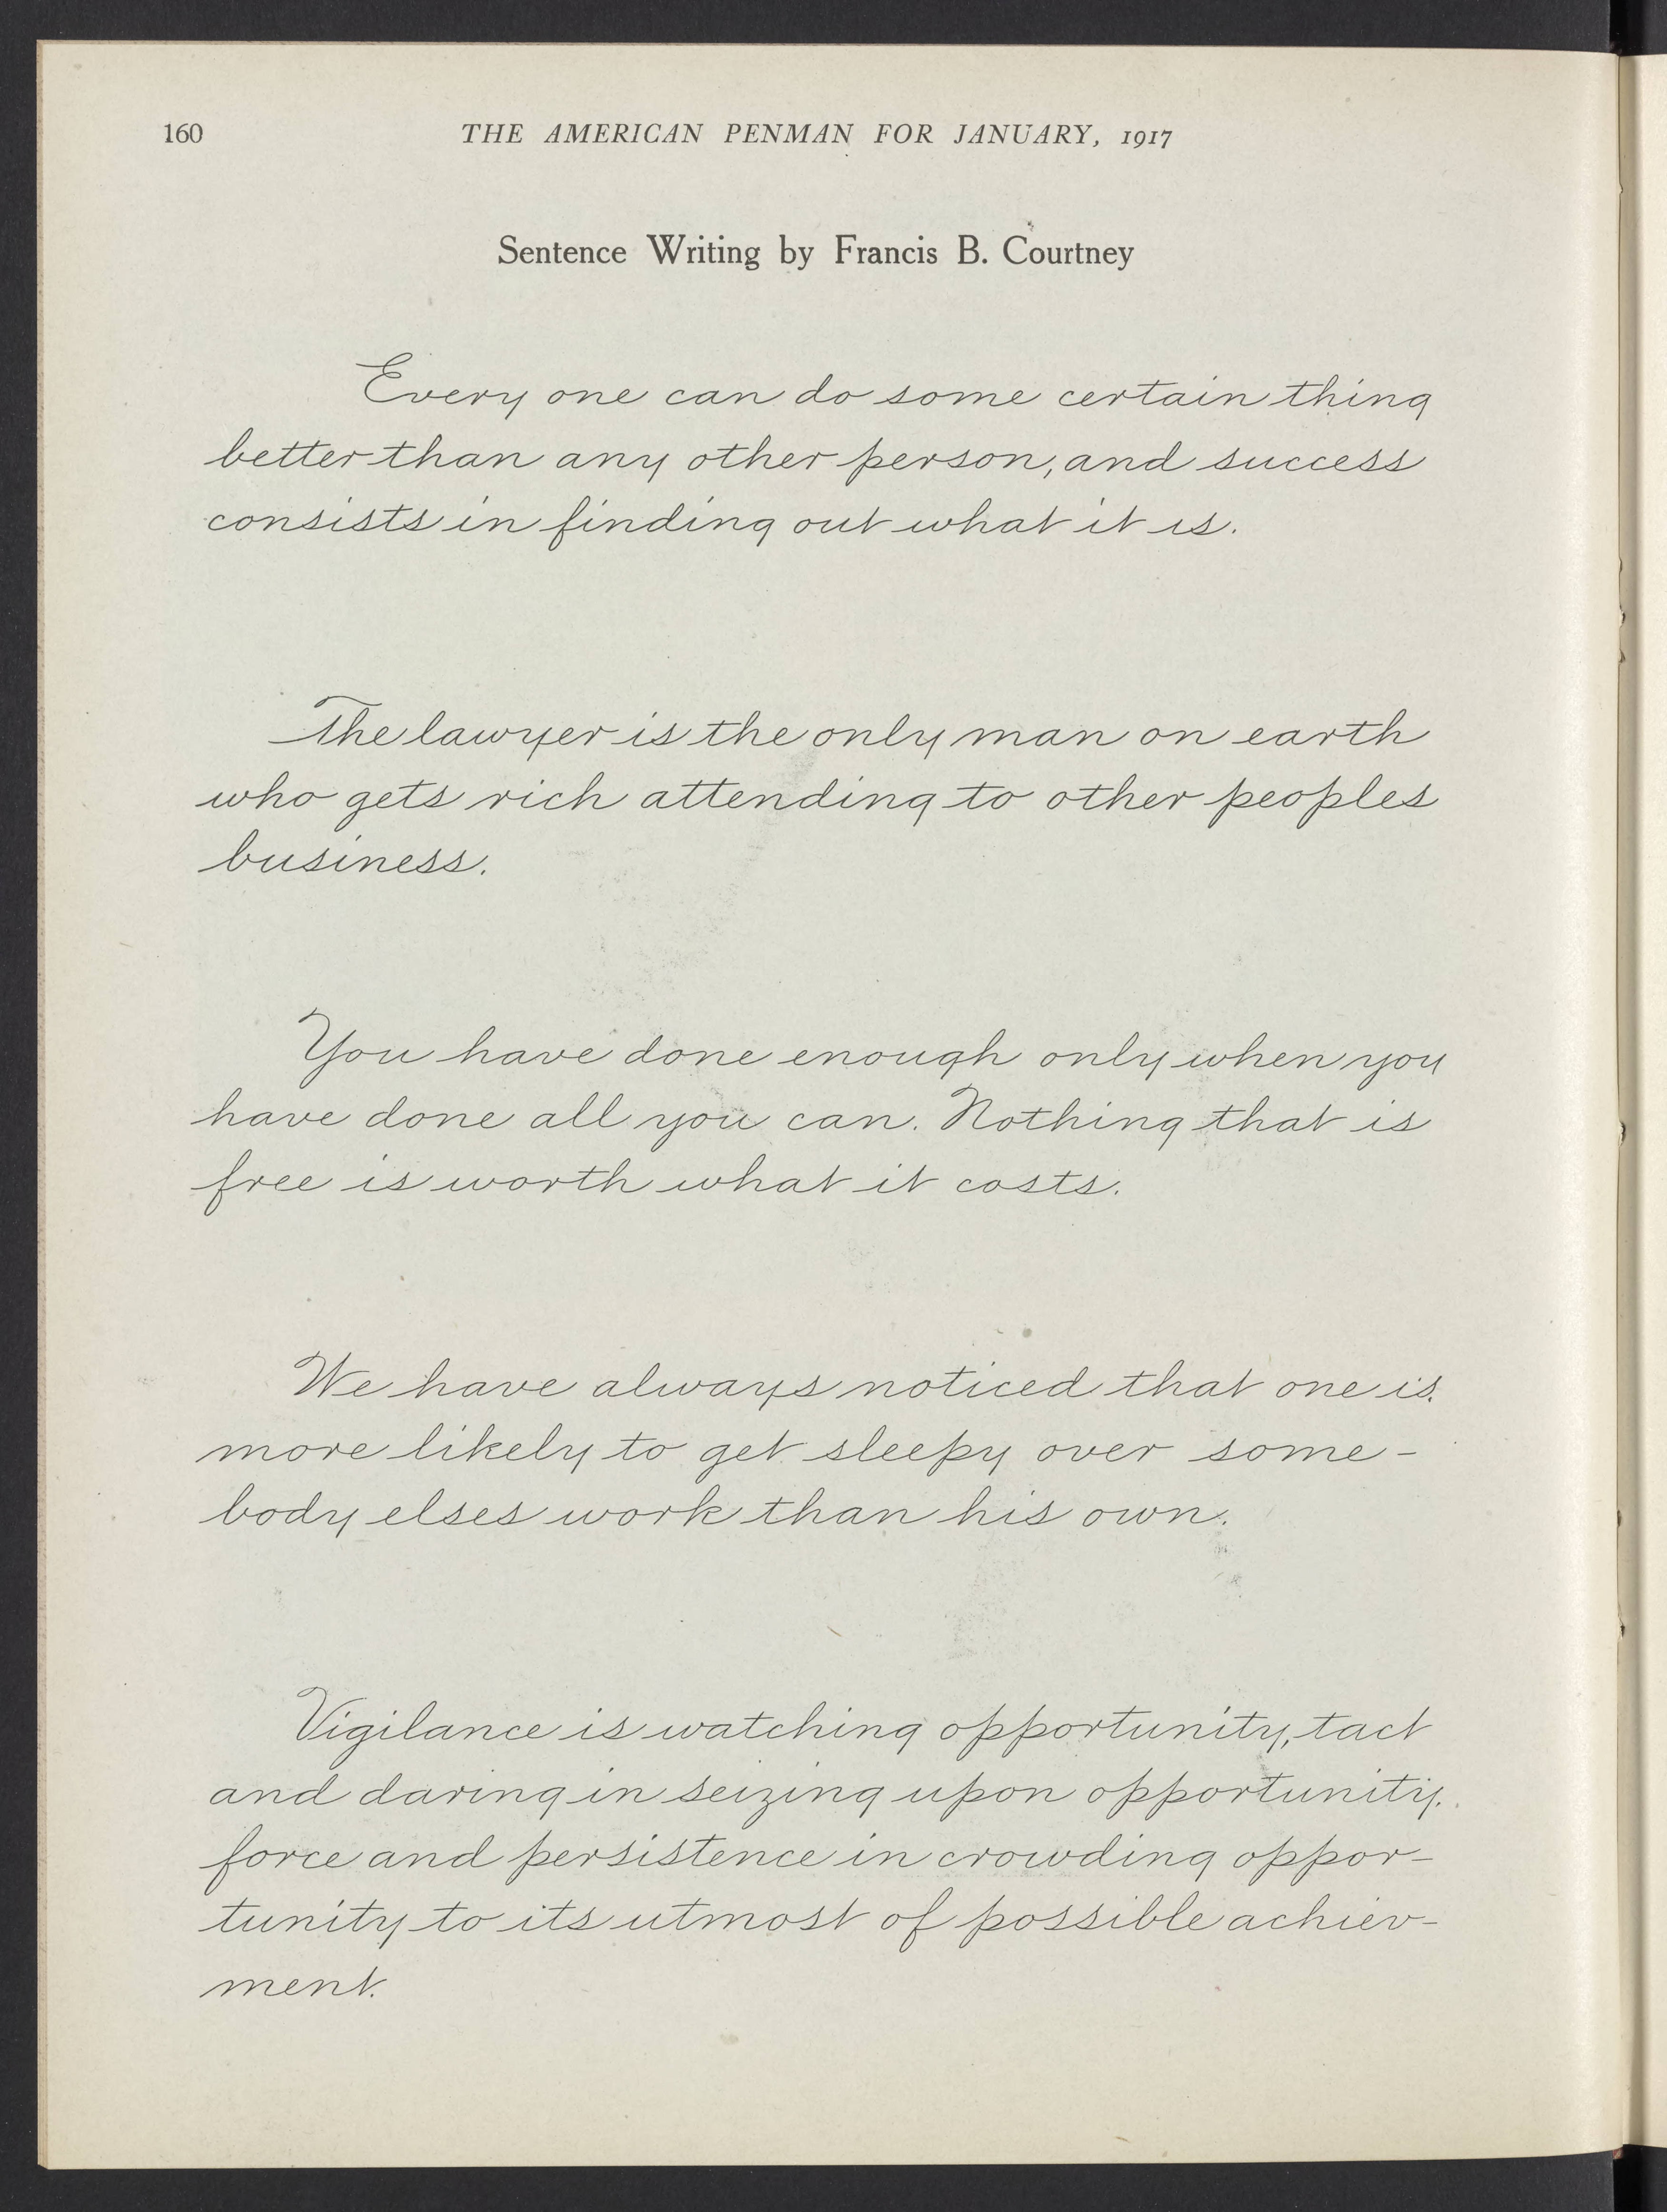 160
THE AMERICAN PENMAN FOR JANUARY, 1917
Sentence Writing by Francis B. Courtney
Every one can do some certain thing
better than any other person, and success
consists in finding out what it is.
The lawyer is the only man on earth
who gets rich attending to other peoples
business.
You have done enough only when you
have done all you can. Nothing that is
free is worth what it costs.
We have always noticed that one is
more likely to get sleepy over some-
body elses work than his own.
Vigilance is watching opportunity, tact
and daring in seizing upon opportunity.
force and persistence in crowding oppor-
tunity to its utmost of possible achiev-
ment.